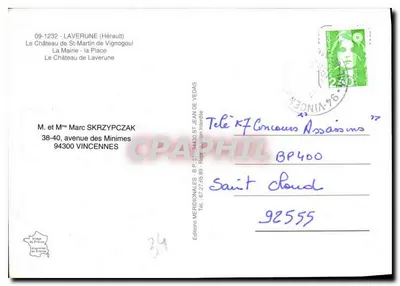 09-1232 - LAVERUNE (Hérault)
Le Château de St-Martin de Vignogoul
La Mairie - la Place
Le Château de Laverune
M. et Mme Marc SKRZYPCZAK
38-40, avenue des Minimes
94300 VINCENNES
Editions MERIDIONALES - B.P.
ST JEAN DE VEDAS
Tél. 67.27.69.89
94-VINCEN
2,20
Télé K7 Concours "Assassins"
BP400
Saint Cloud
92555
34
CPAPHIL.com